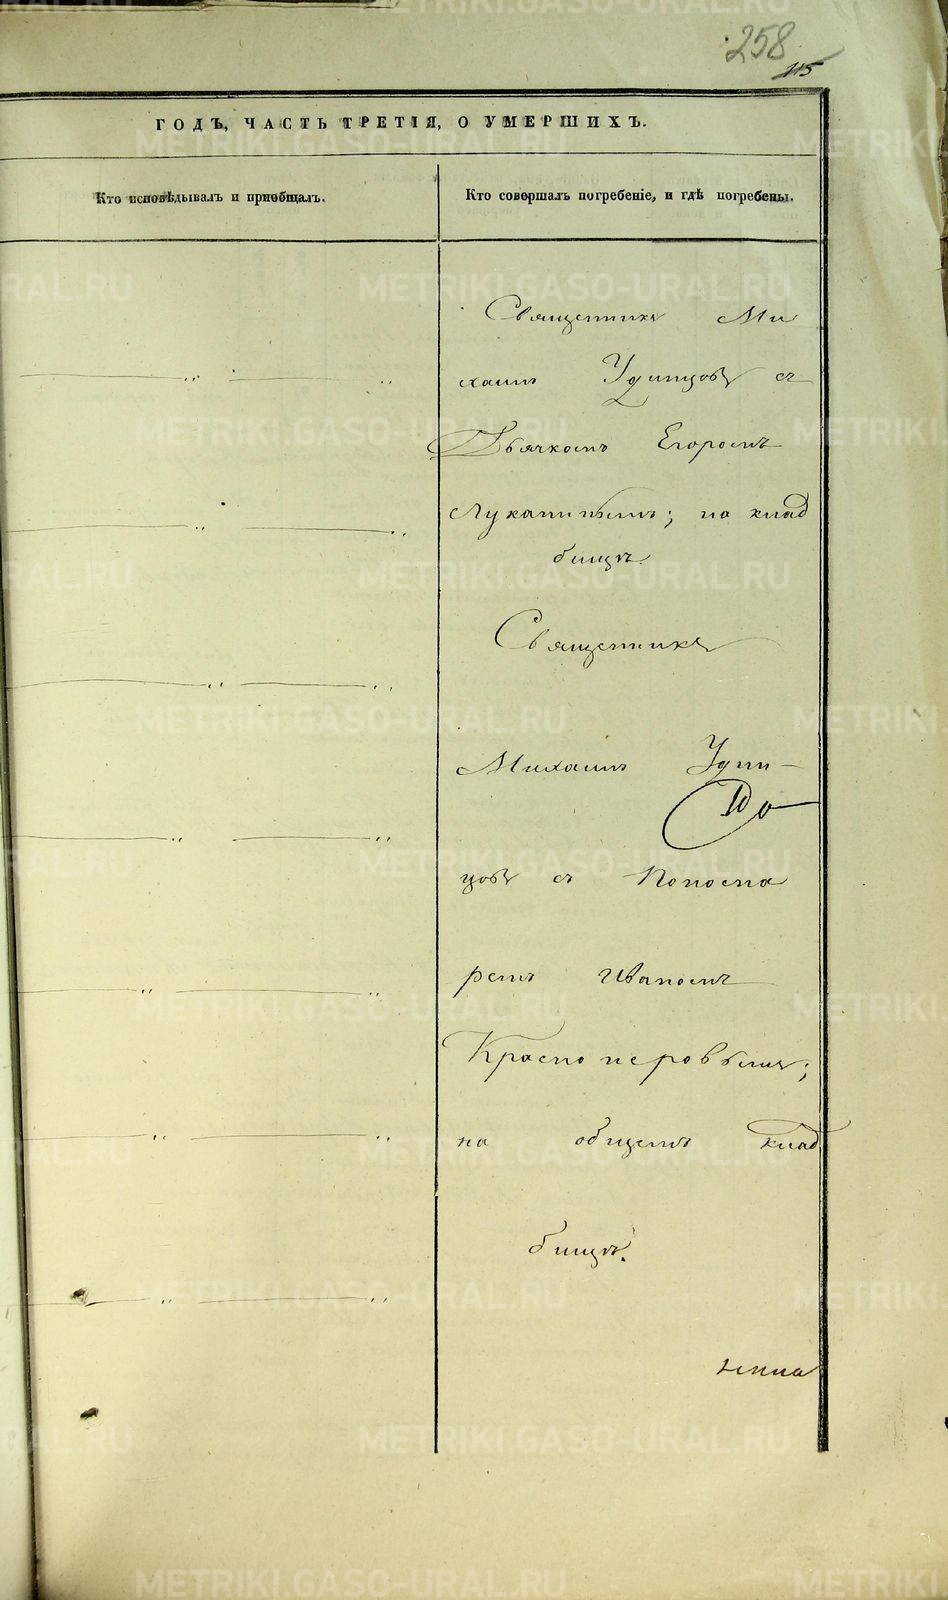 258
115
ГОДЪ, ЧАСТЬ ТРЕТІЯ, О УМЕРШИХЪ.
Кто исповѣдывалъ и пріобщалъ.
Кто совершалъ погребеніе, и гдѣ погребены.
Священникъ Ми
хаилъ Удинцовъ съ
Дьячкомъ Егоромъ
Луканинымъ; на клад
бищѣ.
Священникъ
Михаилъ Удин-
цовъ съ Пономa
ремъ Иваномъ
Красноперовымъ;
на общемъ клад
бищѣ.
METRIKI.GASO-URAL.RU